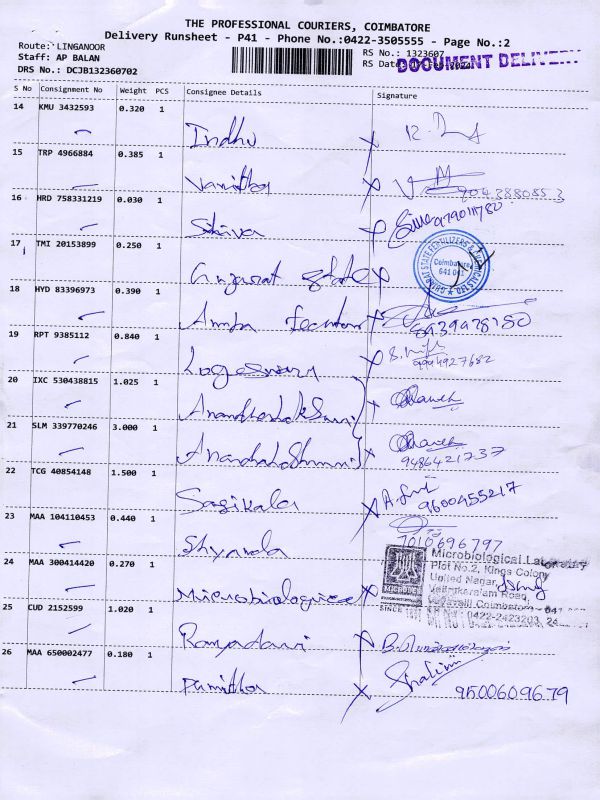 THE PROFESSIONAL COURIERS, COIMBATORE
Delivery Runsheet - P41 - Phone No.:0422-3505555 - Page No.:2
Route: LINGANOOR
RS No.: 1323607
Staff: AP BALAN
RS Date
DOCUMENT DELIVERY
DRS No.: DCJB132360702
S No Consignment No Weight PCS Consignee Details Signature
14 KMU 3432593 0.320 1
Indhu
15 TRP 4966884 0.385 1
Vanitha
9043880853
16 HRD 758331219 0.030 1
Shiva
17 TMI 20153899 0.250 1
Gujarat State
Coimbatore
641 001
18 HYD 83396973 0.390 1
Amba
19 RPT 9385112 0.840 1
Logeswary
9994927682
20 IXC 530438815 1.025 1
21 SLM 339770246 3.000 1
9486421737
22 TCG 40854148 1.500 1
Sasikala
9600455217
23 MAA 104110453 0.440 1
Shyamla
7010696797
24 MAA 300414420 0.270 1
Microbiological
Microbiological Laboratory
Plot No.2, Kings Colony
United Nagar,
Road,
Coimbatore - 641
0422-2423203, 24
SINCE
25 CUD 2152599 1.020 1
Ramadavi
26 MAA 650002477 0.180 1
Pamitha
Shalini
9500609679